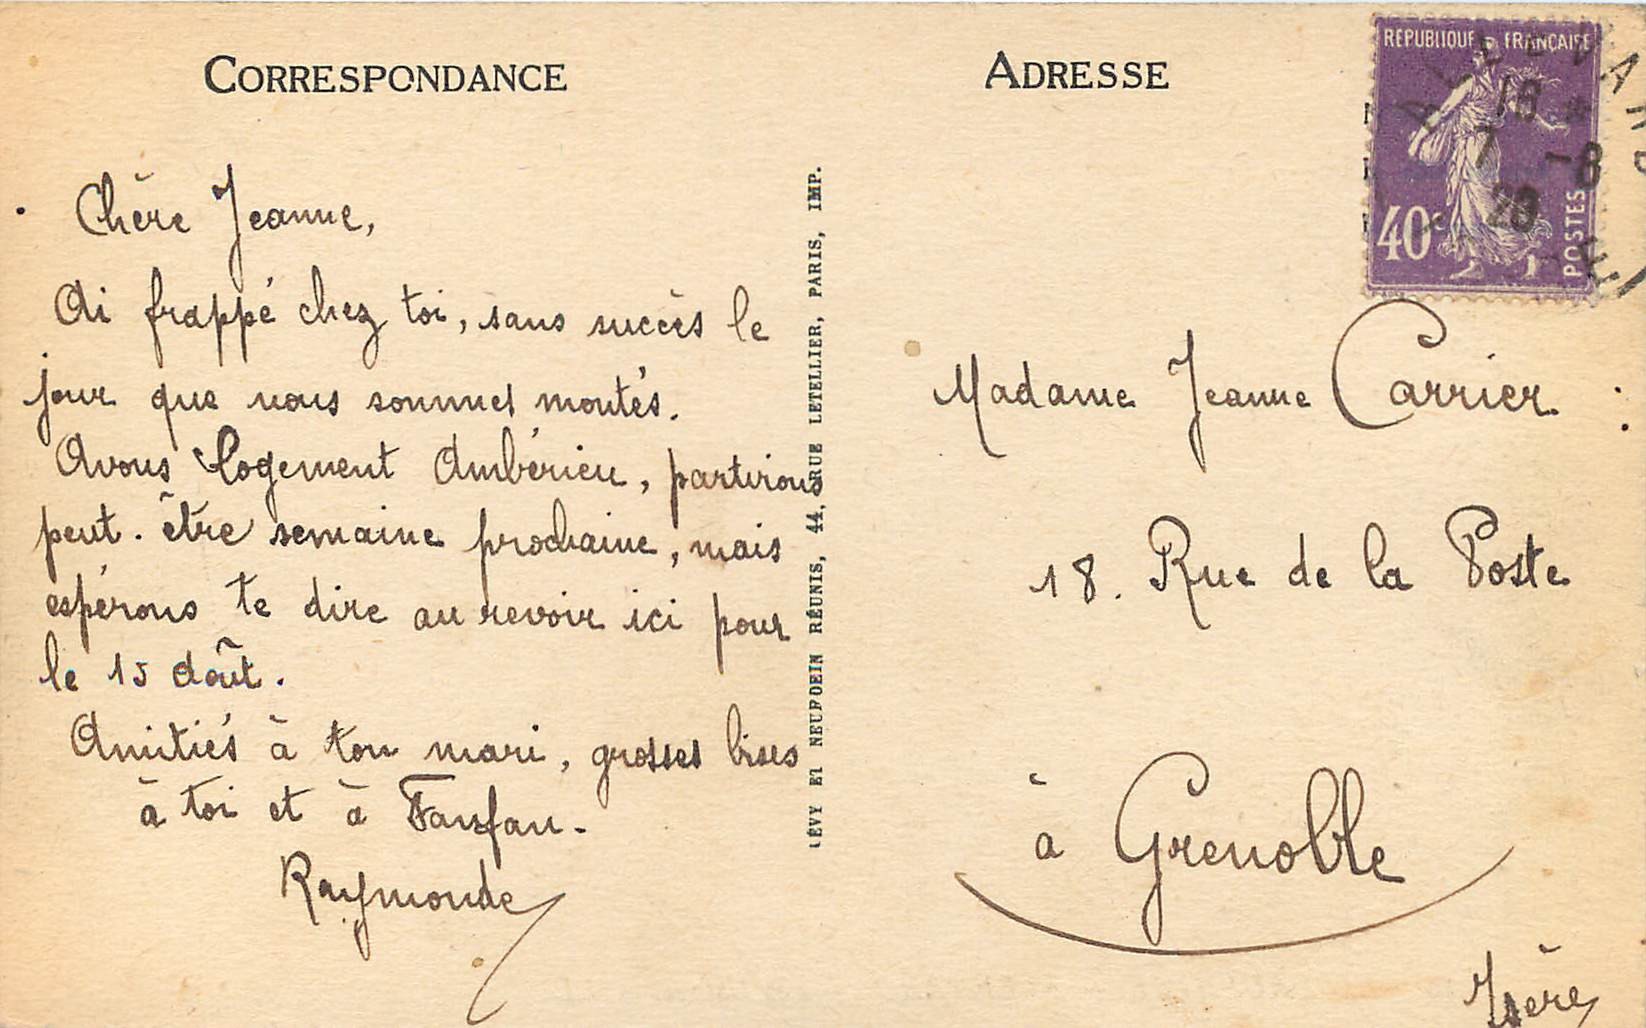 CORRESPONDANCE
Chère Jeanne,
Ai frappé chez toi, sans succès le
jour que nous sommes montés.
Avons logement Ambérieu, partirons
peut-être semaine prochaine, mais
espérons te dire au revoir ici pour
le 15 août.
Amitiés à ton mari, grosses bises
à toi et à Fanfan.
Raymonde
LÉVY ET NEURDEIN RÉUNIS, 44, RUE LETELLIER, PARIS, IMP.
ADRESSE
REPUBLIQUE FRANÇAISE
40c
POSTES
18
7 -8
26
Madame Jeanne Carrier
18. Rue de la Poste
à Grenoble
Isère